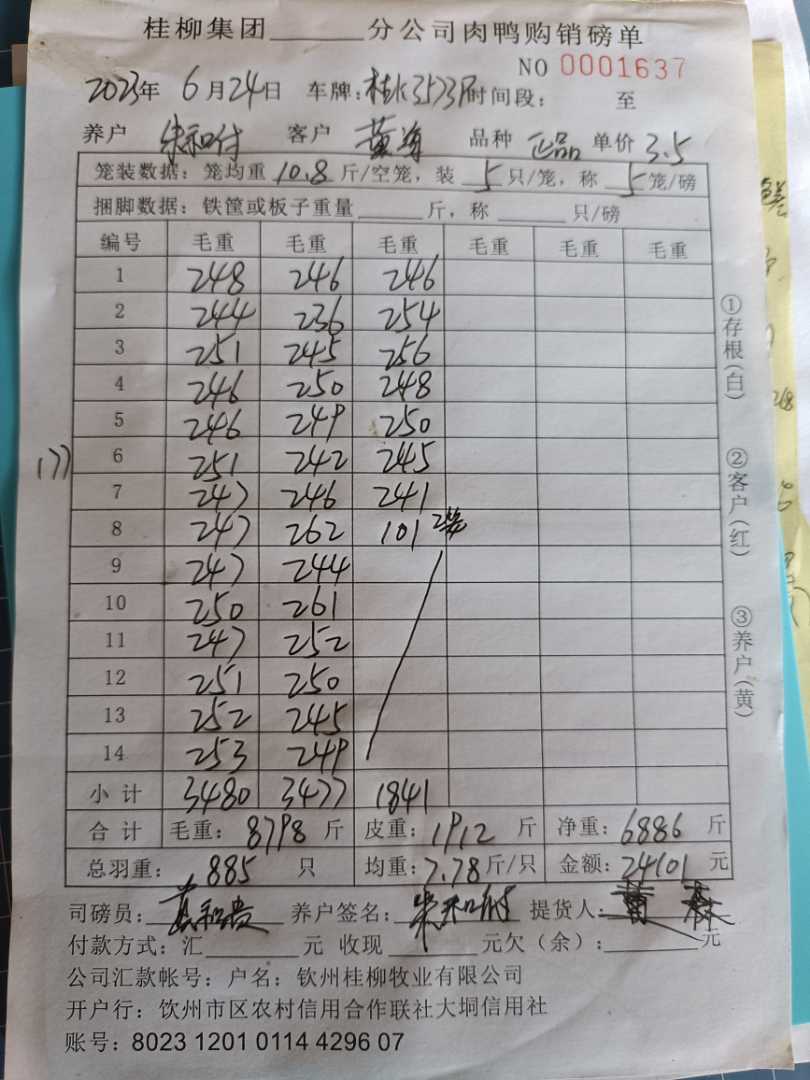 桂柳集团______分公司肉鸭购销磅单
NO 0001637
2023年 6月24日 车牌: 时间段: 至
养户 朱和付 客户 黄海 品种 正品 单价 3.5
笼装数据: 笼均重 10.8 斤/空笼, 装 5 只/笼, 称 5 笼/磅
捆脚数据: 铁筐或板子重量______斤, 称______只/磅
编号 毛重 毛重 毛重 毛重 毛重 毛重
1 248 246 246
2 244 236 254
3 251 245 256
4 246 250 248
5 246 249 250
6 251 242 245
177
7 247 246 241
8 247 262 101 2笼
9 247 244
10 250 261
11 247 252
12 251 250
13 252 245
14 253 249
小计 3480 3477 1841
合计 毛重: 8798 斤 皮重: 1912 斤 净重: 6886 斤
总羽重: 885 只 均重: 7.78 斤/只 金额: 24101 元
司磅员: 养户签名: 朱和付 提货人:
付款方式: 汇______元 收现______元欠(余):______元
公司汇款帐号: 户名: 钦州桂柳牧业有限公司
开户行: 饮州市区农村信用合作联社大垌信用社
账号: 8023 1201 0114 4296 07
①存根(白)
②客户(红)
③养户(黄)